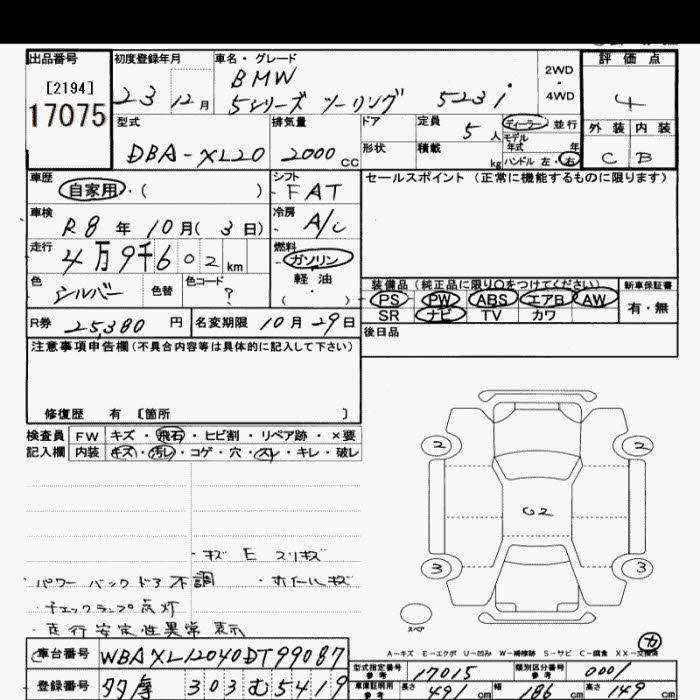 出品番号 初度登録年月 車名・グレード 評価点
[2194] BMW 2WD
17075 23 12月 5シリーズ ツーリング 523i 4WD 4
型式 排気量 ドア 定員 5人 ディーラー 並行 外装 内装
モデル年式 年
DBA-XL20 2000cc 形状 積載 kg ハンドル 左・右 C B
車歴 自家用・( ) シフト FAT セールスポイント (正常に機能するものに限ります)
車検 R8年10月(3日) 冷房 A/C
走行 4万9千602km 燃料 ガソリン
色 シルバー 色替 色コード ? 軽油 ・( )
装備品 (純正品に限り○をつけてください) 新車保証書
PS PW ABS エアB AW 有・無
R券 25,380円 名変期限 10月29日 SR ナビ TV カワ
注意事項申告欄(不具合内容等は具体的に記入して下さい) 後日品
修復歴 有 〔箇所 〕
検査員 FW キズ・飛石・ヒビ割・リペア跡・×要
記入欄 内装 キズ・汚レ・コゲ・穴・スレ・キレ・破レ
2 2
G2
3 3
・キズ E スリキズ
・パワーバックドア不調 ・ホイールキズ
・チェックランプ点灯
・走行安定性異常表示
スペア
A-キズ E-エクボ U-凹み W-補修跡 S-サビ C-腐食 XX-交換済
車台番号 WBAXL12040DT99087 型式指定番号 参考 17015 類別区分番号 参考 0001
登録番号 303 む 5419 車庫証明用 参考 長さ 491cm 幅 186cm 高さ 149cm